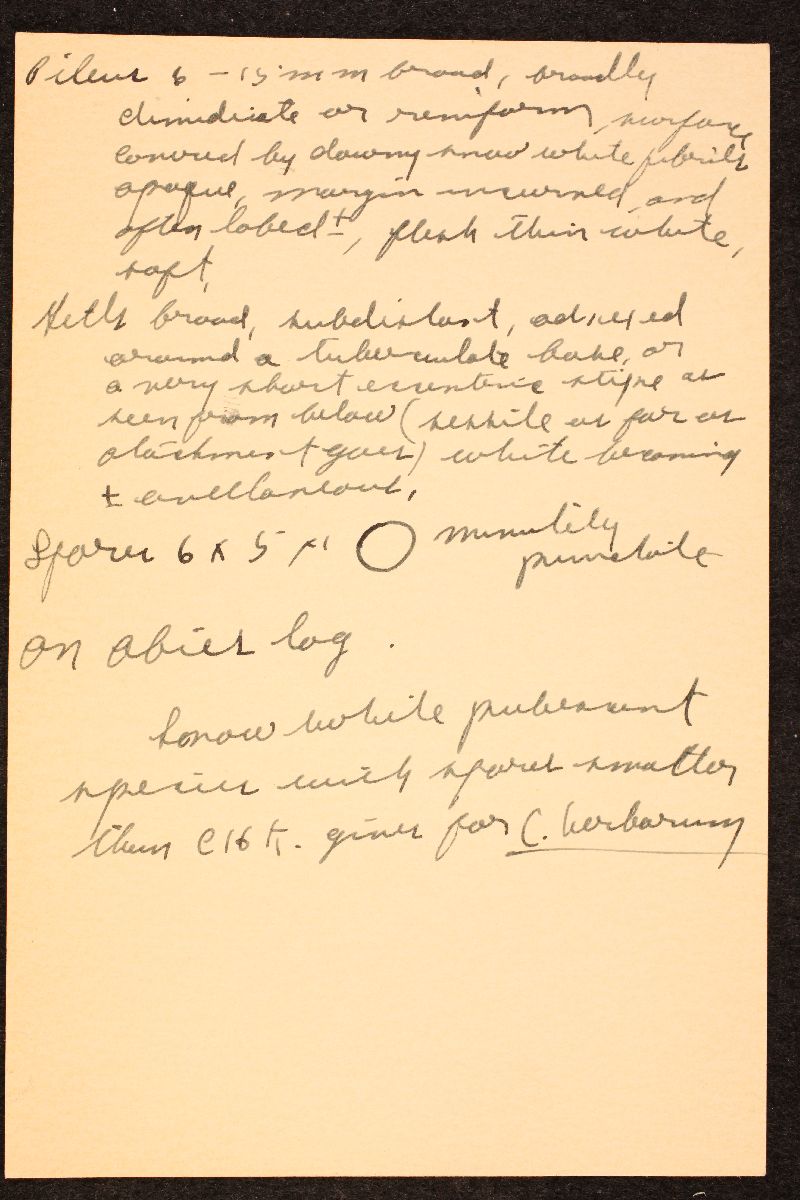 Pileus 6 - 15 mm broad, broadly
dimidiate or reniform, surface
covered by downy snow white fibrils
opaque, margin incurved, and
often lobed ±, flesh thin white,
soft,
Gills broad, subdistant, adnexed
around a tuberculate base, or
a very short eccentric stipe as
seen from below (sessile as far as
attachment goes) white becoming
± avellaneous,
Spores 6 x 5 µ minutely
punctate
on abies log .
snow white pubescent
species with spores smaller
than C & K. gives for C. herbarum